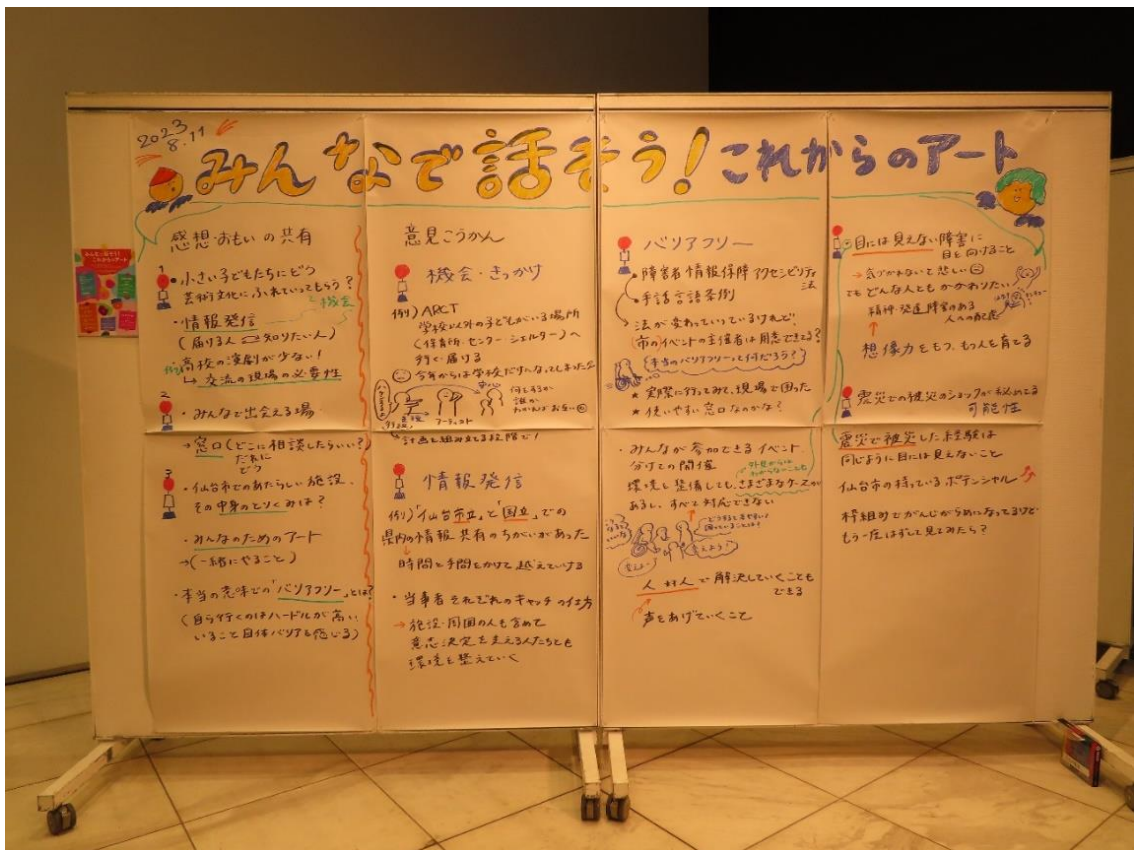 2023
8.11
みんなで話そう!これからのアート
感想・おもいの共有
1
・小さい子どもたちにどう
芸術文化にふれていってもらう?
機会
・情報発信
(届ける人 知りたい人)
例)高校の演劇が少ない!
↳ 交流の現場の必要性
2
・みんなで出会える場
→窓口(どこに相談したらいい?
だれに
どう
3
・仙台市でのあたらしい施設、
その中身のとりくみは?
・みんなのためのアート
→(一緒にやること)
・本当の意味での「バリアフリー」とは?
(自ら行くのはハードルが高い、
いること自体バリアを感じる)
意見こうかん
機会・きっかけ
例)ARCT
学校以外の子どもがいる場所
(保育所・センター・シェルター)へ
届ける
今年からは学校だけになってしまった
安心
何をするか
誰か
わかればお互い
アーティスト
計画を組み立てる段階で!
情報発信
例)「仙台市立」と「国立」での
県内の情報共有のちがいがあった
時間と手間をかけて越えていける
・当事者それぞれのキャッチの仕方
→施設・周囲の人も含めて
意志決定を支える人たちとも
環境を整えていく
バリアフリー
・障害者情報保障 アクセシビリティ
法
・手話言語条例
法が変わっていっているけれど!
市のイベントの主催者は用意できてる?
本当のバリアフリーって何だろう?
★ 実際に行ってみて、現場で困った
★ 使いやすい窓口なのかな?
・みんなが参加できるイベント、
分けての開催
外見からは
わからないことも
環境を整備しても、さまざまなケースが
あるし、すべて対応できない
人対人で解決していくことも
できる
声をあげていくこと
目には見えない障害に
目を向けること
→気づかれないで悲しい
でもどんな人ともかかわりたい
精神・発達障害のある
人への配慮
想像力をもつ、もつ人を育てる
震災での被災のショックが秘めてる
可能性
震災で被災した経験は
同じように目には見えないこと
仙台市の持っているポテンシャル
枠組みでがんじがらめになってるけど
もう一度はずして見てみたら?